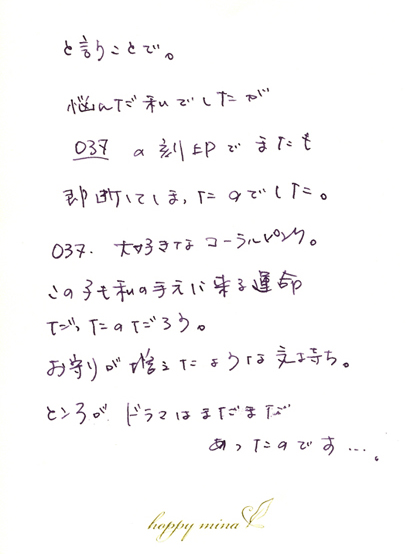 と言うことで。
悩んだ私でしたが
037 の刻印でまたも
即断してしまったのでした。
037. 大好きなコーラルピンク。
この子も私の手元に来る運命
だったのだろう。
お守りが増えたような気持ち。
ところが、ドラマはまだまだ
あったのです…。
happy mina